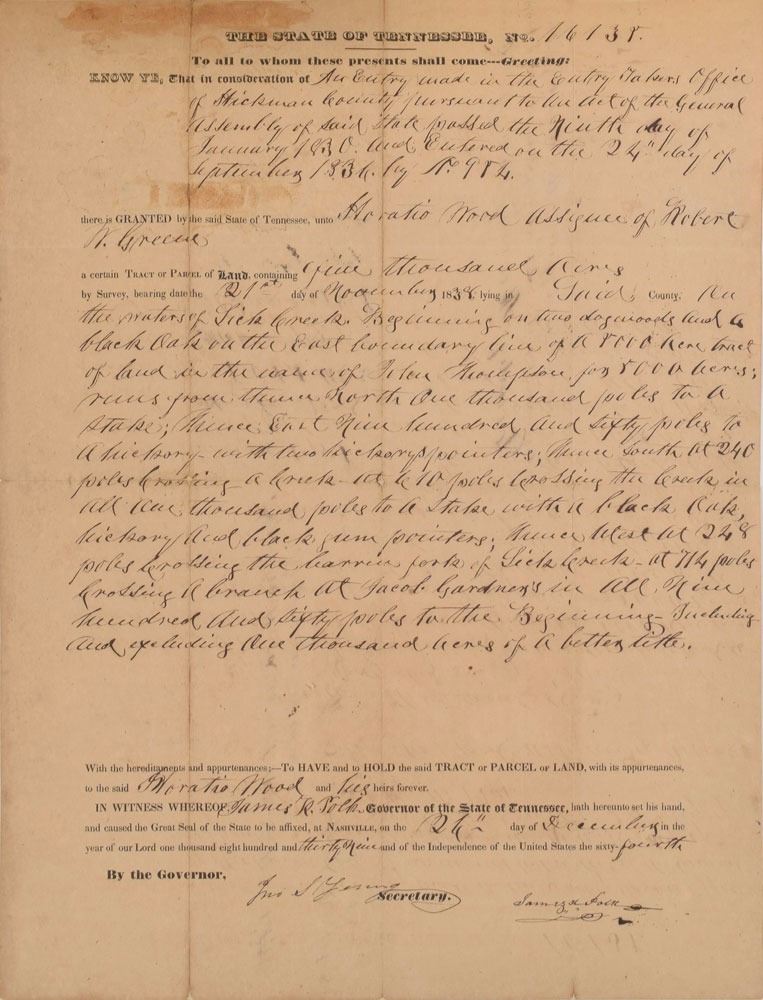 THE STATE OF TENNESSEE, No. 16138.
To all to whom these presents shall come---Greeting:
KNOW YE, That in consideration of An Entry made in the Entry Takers Office
of Hickman County pursuant to an act of the General
Assembly of said State passed the Ninth day of
January 1830. And Entered on the 24th day of
September 1836. by No 984.
there is GRANTED by the said State of Tennessee, unto Horatio Wood Assignee of Robert
W. Greene
a certain TRACT or PARCEL of Land, containing five thousand Acres
by Survey, bearing date the 21st day of November 1838 lying in Said County, On
the waters of Lick Creek. Beginning on two dogwoods and a
black Oak on the East boundary line of a 8000 Acre tract
of land in the name of John Thompson for 8000 Acres;
runs from thence North One thousand poles to a
stake; thence East Nine hundred and Sixty poles to
a hickory with two hickorys pointers; thence South at 240
poles Crossing a Creek at 610 poles Crossing the Creek in
all One thousand poles to a Stake with a black Oak,
hickory and black gum pointers; thence West at 248
poles Crossing the barren fork of Lick Creek - at 714 poles
Crossing a branch at Jacob Gardner's in all Nine
hundred and Sixty poles to the Beginning - Including
and excluding One thousand acres of a better title.
With the hereditaments and appurtenances;—To HAVE and to HOLD the said TRACT or PARCEL of LAND, with its appurtenances,
to the said Horatio Wood and his heirs forever.
IN WITNESS WHEREOF, James K. Polk, Governor of the State of Tennessee, hath hereunto set his hand,
and caused the Great Seal of the State to be affixed, at NASHVILLE, on the 26th day of December in the
year of our Lord one thousand eight hundred and thirty Nine and of the Independence of the United States the sixty-fourth
By the Governor,
Jno S Young Secretary.
James K Polk